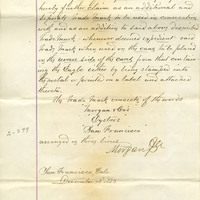 hereby further Claim as an additional and
separate Trade mark to be used in connection
with and as an addition to said above described
Trade mark whenever deemed expedient said
Trade mark when used on the cans to be placed
on the reverse side of the cans from that contain-
ing the Eagle either by being stamped into
the metal or printed on a label and attached
thereto.
My Trade Mark consists of the words
Morgan & Co's
Oysters
San Francisco
arranged in three lines.
2-399
Morgan & Co
San Francisco, Cal.
December 1883